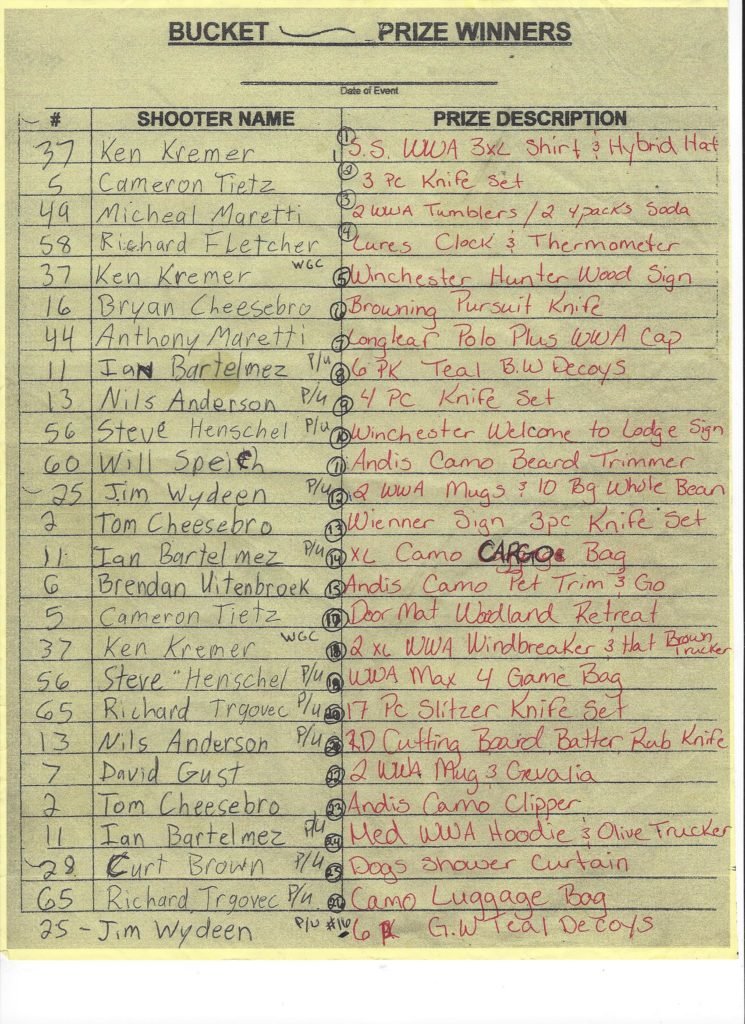 BUCKET PRIZE WINNERS
Date of Event
# SHOOTER NAME PRIZE DESCRIPTION
37 Ken Kremer 1 S.S. WWA 3XL Shirt & Hybrid Hat
5 Cameron Tietz 2 3 Pc Knife Set
49 Micheal Maretti 3 2 WWA Tumblers / 2 4packs Soda
58 Richard Fletcher 4 Lures Clock & Thermometer
37 Ken Kremer WGC 5 Winchester Hunter Wood Sign
16 Bryan Cheesebro 6 Browning Pursuit Knife
44 Anthony Maretti 7 Longlear Polo Plus WWA Cap
11 Ian Bartelmez P/u 8 6 PK Teal B.W Decoys
13 Nils Anderson P/u 9 4 PC Knife Set
56 Steve Henschel P/u 10 Winchester Welcome to Lodge Sign
60 Will Speich 11 Andis Camo Beard Trimmer
25 Jim Wydeen P/u 12 2 WWA Mugs & 10 Bg Whole Bean
2 Tom Cheesebro 13 Wienner Sign 3pc Knife Set
11 Ian Bartelmez P/u 14 XL Camo CARGO Bag
6 Brendan Uitenbroek 15 Andis Camo Pet Trim & Go
5 Cameron Tietz 17 Door Mat Woodland Retreat
37 Ken Kremer WGC 18 2 XL WWA Windbreaker & Hat Brown Trucker
56 Steve Henschel P/u 19 WWA Max 4 Game Bag
65 Richard Trgovec P/u 20 17 Pc Slitzer Knife Set
13 Nils Anderson P/u 21 RD Cutting Board Batter Rub Knife
7 David Gust 22 2 WWA Mug & Gevalia
2 Tom Cheesebro 23 Andis Camo Clipper
11 Ian Bartelmez P/u 24 Med WWA Hoodie & Olive Trucker
28 Curt Brown P/u 25 Dogs Shower Curtain
65 Richard Trgovec P/u 26 Camo Luggage Bag
25 - Jim Wydeen P/U #16 6 PK G.W Teal Decoys